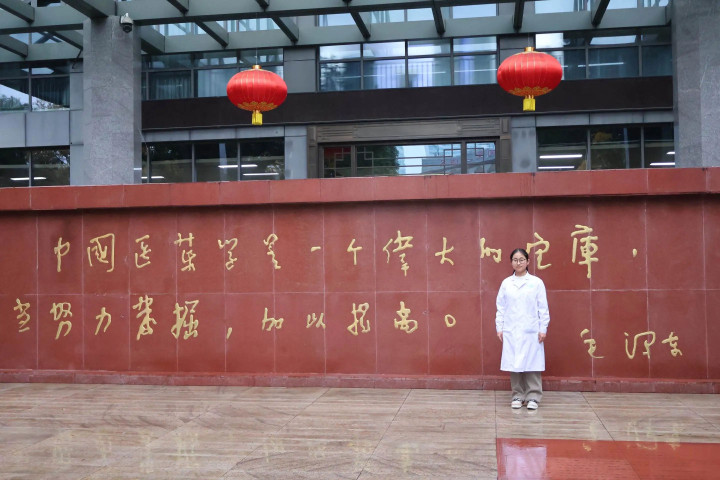 中国医药学是一个偉大的宝庫，
当努力發掘，加以提高。
毛泽东